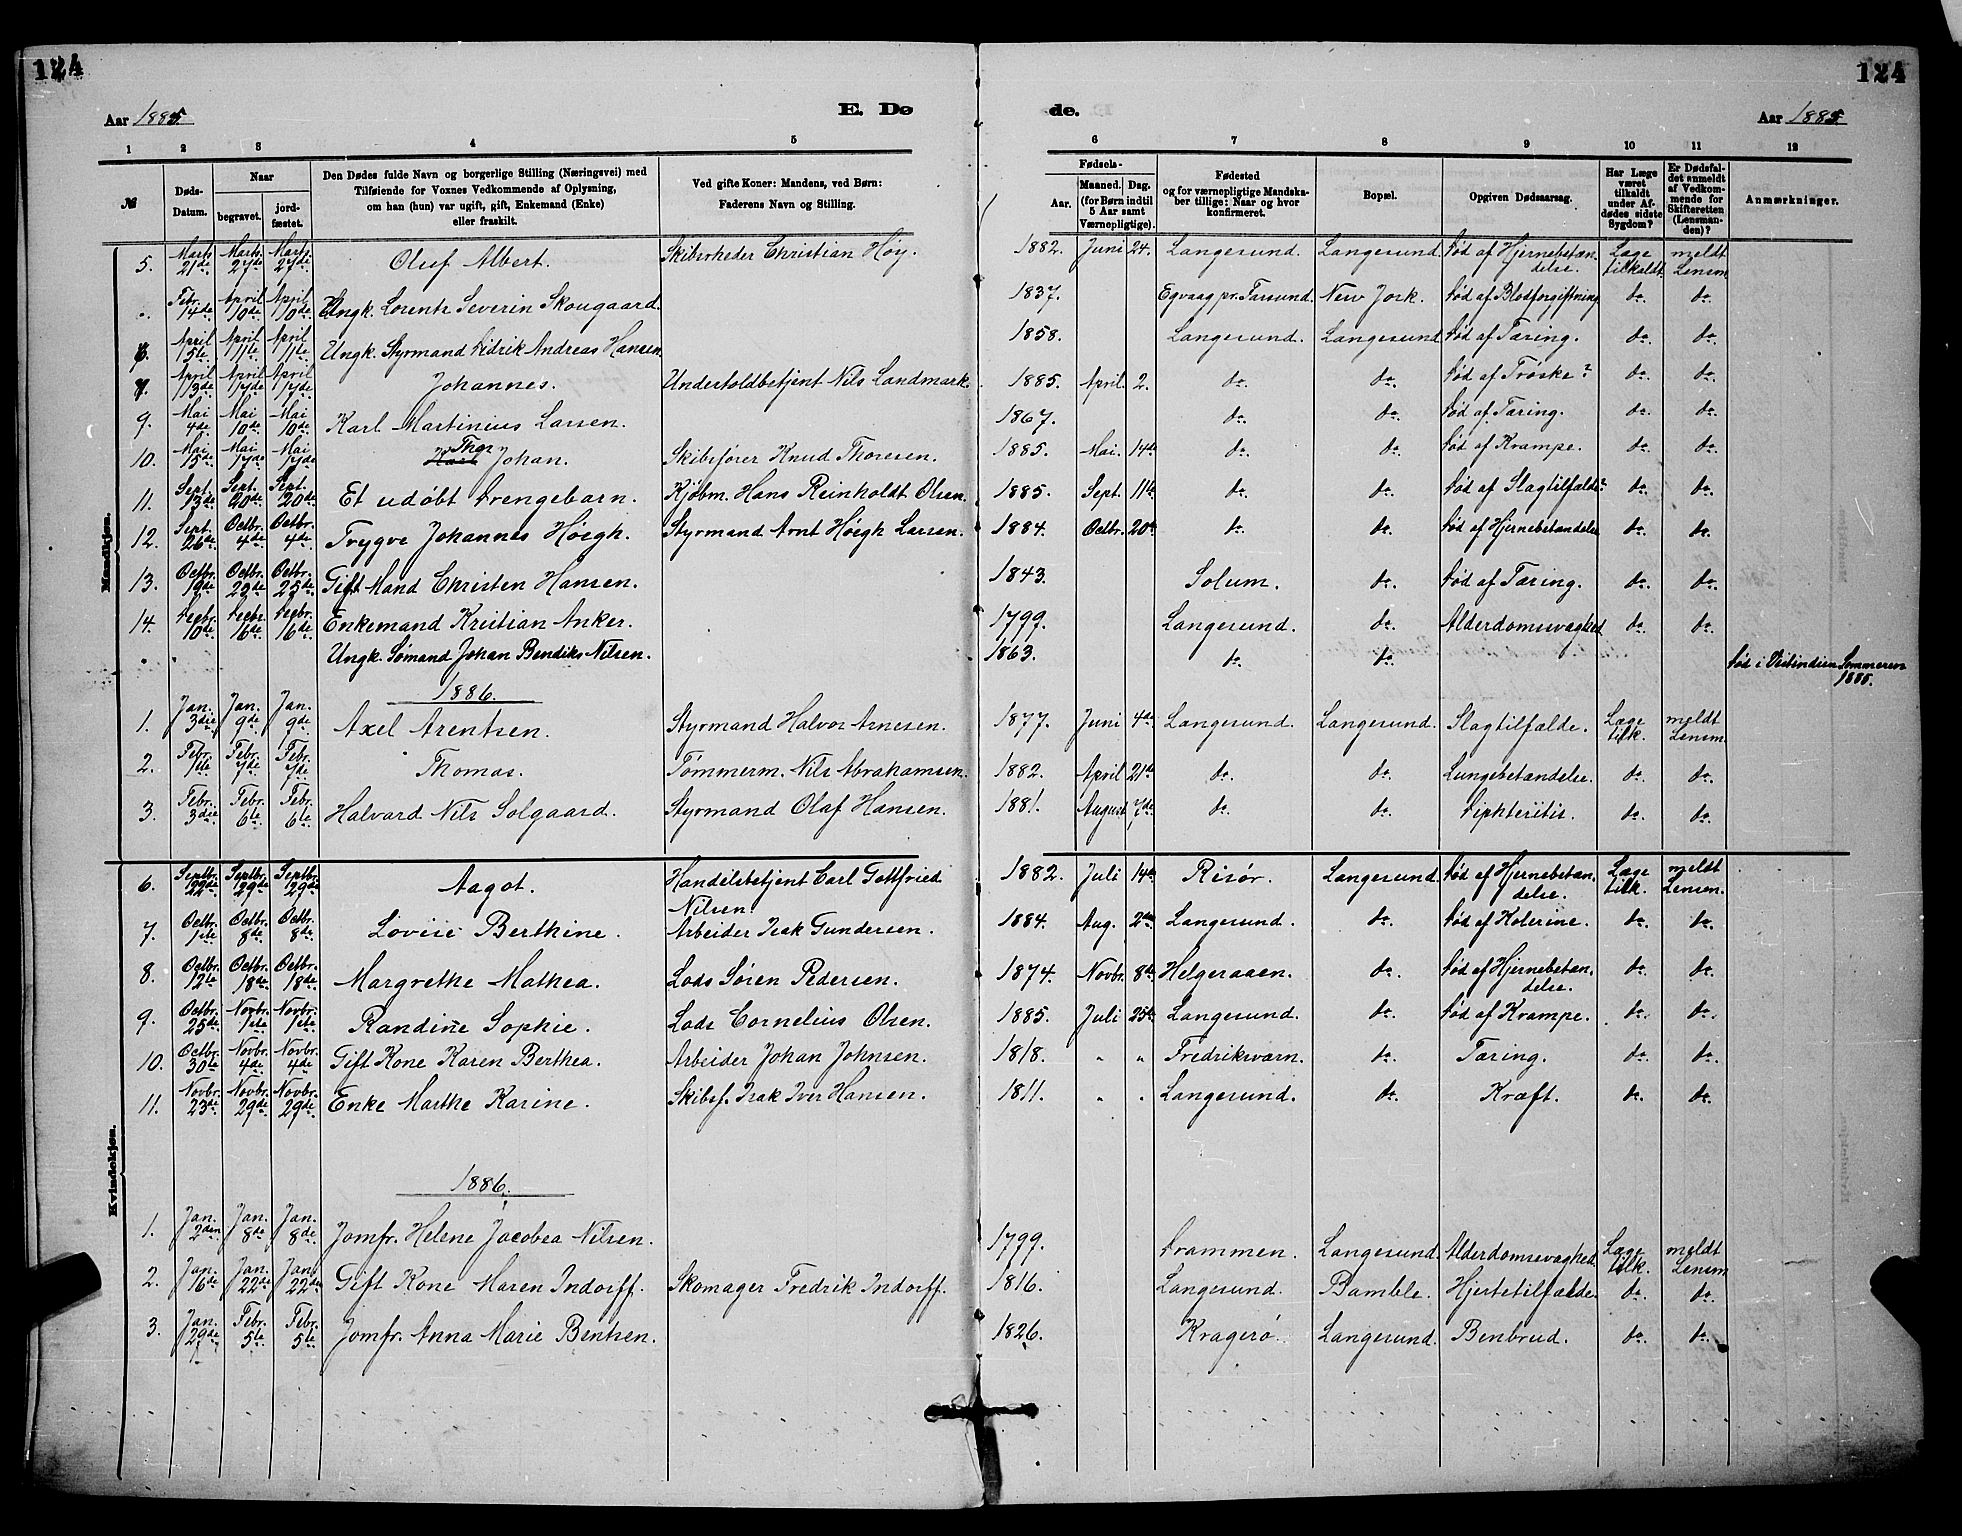 124
124
Aar 1885.
E. Dø
de.
Aar 1885.
1 2 3 4 5 6 7 8 9 10 11 12
№
Døds-Datum.
Naar
begravet.
jordfæstet.
Den Dødes fulde Navn og borgerlige Stilling (Næringsvei) med
Tilføiende for Voxnes Vedkommende af Oplysning,
om han (hun) var ugift, gift, Enkemand (Enke)
eller fraskilt.
Ved gifte Koner: Mandens, ved Børn:
Faderens Navn og Stilling.
Fødsels-
Aar.
Maaned. Dag.
(for Børn indtil
5 Aar samt
Værnepligtige).
Fødested
og for værnepligtige Mandska-
ber tillige: Naar og hvor
konfirmeret.
Bopæl.
Opgiven Dødsaarsag.
Har Læge
været
tilkaldt
under Af-
dødes sidste
Sygdom?
Er Dødsfal-
det anmeldt
af Vedkom-
mende for
Skifteretten
(Lensman-
den)?
Anmærkninger.
Mandkjøn.
5. Marts 21de Marts 27de Marts 27de Oluf Albert. Skibsrheder Christian Høy. 1882. Juni 24. Langesund. Langesund. Død af Hjernebetændelse. Læge tilkaldt meldt Lensm.
„ Febr. 14de April 10de April 10de Ungk. Lorentz Severin Skougaard. 1837. Egvaag pr. Farsund. New York. Død af Blodforgiftning do. do.
6. April 5te April 11te April 11te Ungk. Styrmand Didrik Andreas Hansen 1858. Langesund. Langesund. Død af Tæring. do. do.
7. April 13de April 17de April 17de Johannes. Undertoldbetjent Nils Landmark. 1885. April. 2. do. do. Død af Trøske? do. do.
9. Mai 4de Mai 10de Mai 10de Karl Martinius Larsen. 1867. do. do. Død af Tæring. do. do.
10. Mai 15de Mai 17de Mai 17de Thor Johan. Skibsfører Knud Thoresen. 1885. Mai. 14de do. do. Død af Krampe. do. do.
11. Sept. 13de Sept. 20de Sept. 20de Et udøbt Drengebarn. Kjøbm. Hans Reinholdt Olsen. 1885. Sept. 11te do. do. Død af Slagtilfælde? do. do.
12. Sept. 26de Octbr. 4de Octbr. 4de Trygve Johannes Høegh. Styrmand Arnt Høegh Larsen. 1884. Octbr. 20de do. do. Død af Hjernebetændelse do. do.
13. Octbr. 19de Octbr. 25de Octbr. 25de Gift Mand Christen Hansen. 1843. Solum. do. Død af Tæring. do. do.
14. Decbr. 10de Decbr. 16de Decbr. 16de Enkemand Kristian Anker. 1799. Langesund. do. Alderdomssvaghed do. do.
„ Ungk. Sømand Johan Bendiks Nilsen. 1863. do. do. Død i Vestindien Sommeren 1885.
1886.
1. Jan. 3die Jan. 9de Jan. 9de Axel Arentsen. Styrmand Halvor Arnesen. 1877. Juni 4de Langesund. Langesund. Slagtilfælde. Læge tilk. meldt Lensm.
2. Febr. 1ste Febr. 7de Febr. 7de Thomas. Tømmerm. Nils Abrahamsen. 1882. April 21de do. do. Lungebetændelse. do. do.
3. Febr. 3die Febr. 6te Febr. 6te Halvard Nils Solgaard. Styrmand Olaf Hansen. 1881. August 7de do. do. Diphteritis. do. do.
Kvindekjøn.
6. Septbr. 22de Septbr. 29de Septbr. 29de Aagot. Handelsbetjent Carl Gottfried Nilsen. 1882. Juli 14de Risør. Langesund. Død af Hjernebetændelse. Læge tilk. meldt Lensm.
7. Octbr. 1ste Octbr. 8de Octbr. 8de Lovise Berthine. Arbeider Isak Gundersen. 1884. Aug. 2den Langesund. do. Død af Kolerine. do. do.
8. Octbr. 12te Octbr. 18de Octbr. 18de Margrethe Mathea. Lods Søren Pedersen. 1874. Novbr. 8de Helgeraaen. do. Død af Hjernebetændelse. do. do.
9. Octbr. 25de Novbr. 1ste Novbr. 1ste Randine Sophie. Lods Cornelius Olsen. 1885. Juli 25de Langesund. do. Død af Krampe. do. do.
10. Octbr. 30te Novbr. 4de Novbr. 4de Gift Kone Karen Berthea. Arbeider Johan Johnsen. 1818. „ „ Fredriksværn. do. Tæring. do. do.
11. Novbr. 23de Novbr. 29de Novbr. 29de Enke Marthe Karine. Skibsf. Isak Iver Hansen. 1811. „ „ Langesund. do. Kræft. do. do.
1886.
1. Jan. 2den Jan. 8de Jan. 8de Jomfr. Helene Jacobea Nilsen. 1799. Drammen. Langesund. Alderdomssvaghed. Læge tilk. meldt Lensm
2. Jan. 16de Jan. 22de Jan. 22de Gift Kone Maren Indorff. Skomager Fredrik Indorff. 1816. Langesund. Bamble. Hjertetilfælde. do. do.
3. Jan. 29de Febr. 5te Febr. 5te Jomfr. Anna Marie Bentsen. 1826. Kragerø. Langesund. Benbrud. do. do.